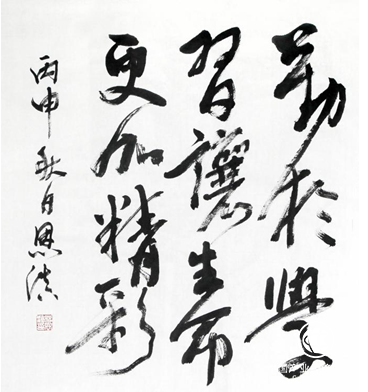 勤於學
習讓生命
更加精彩
丙申秋恩